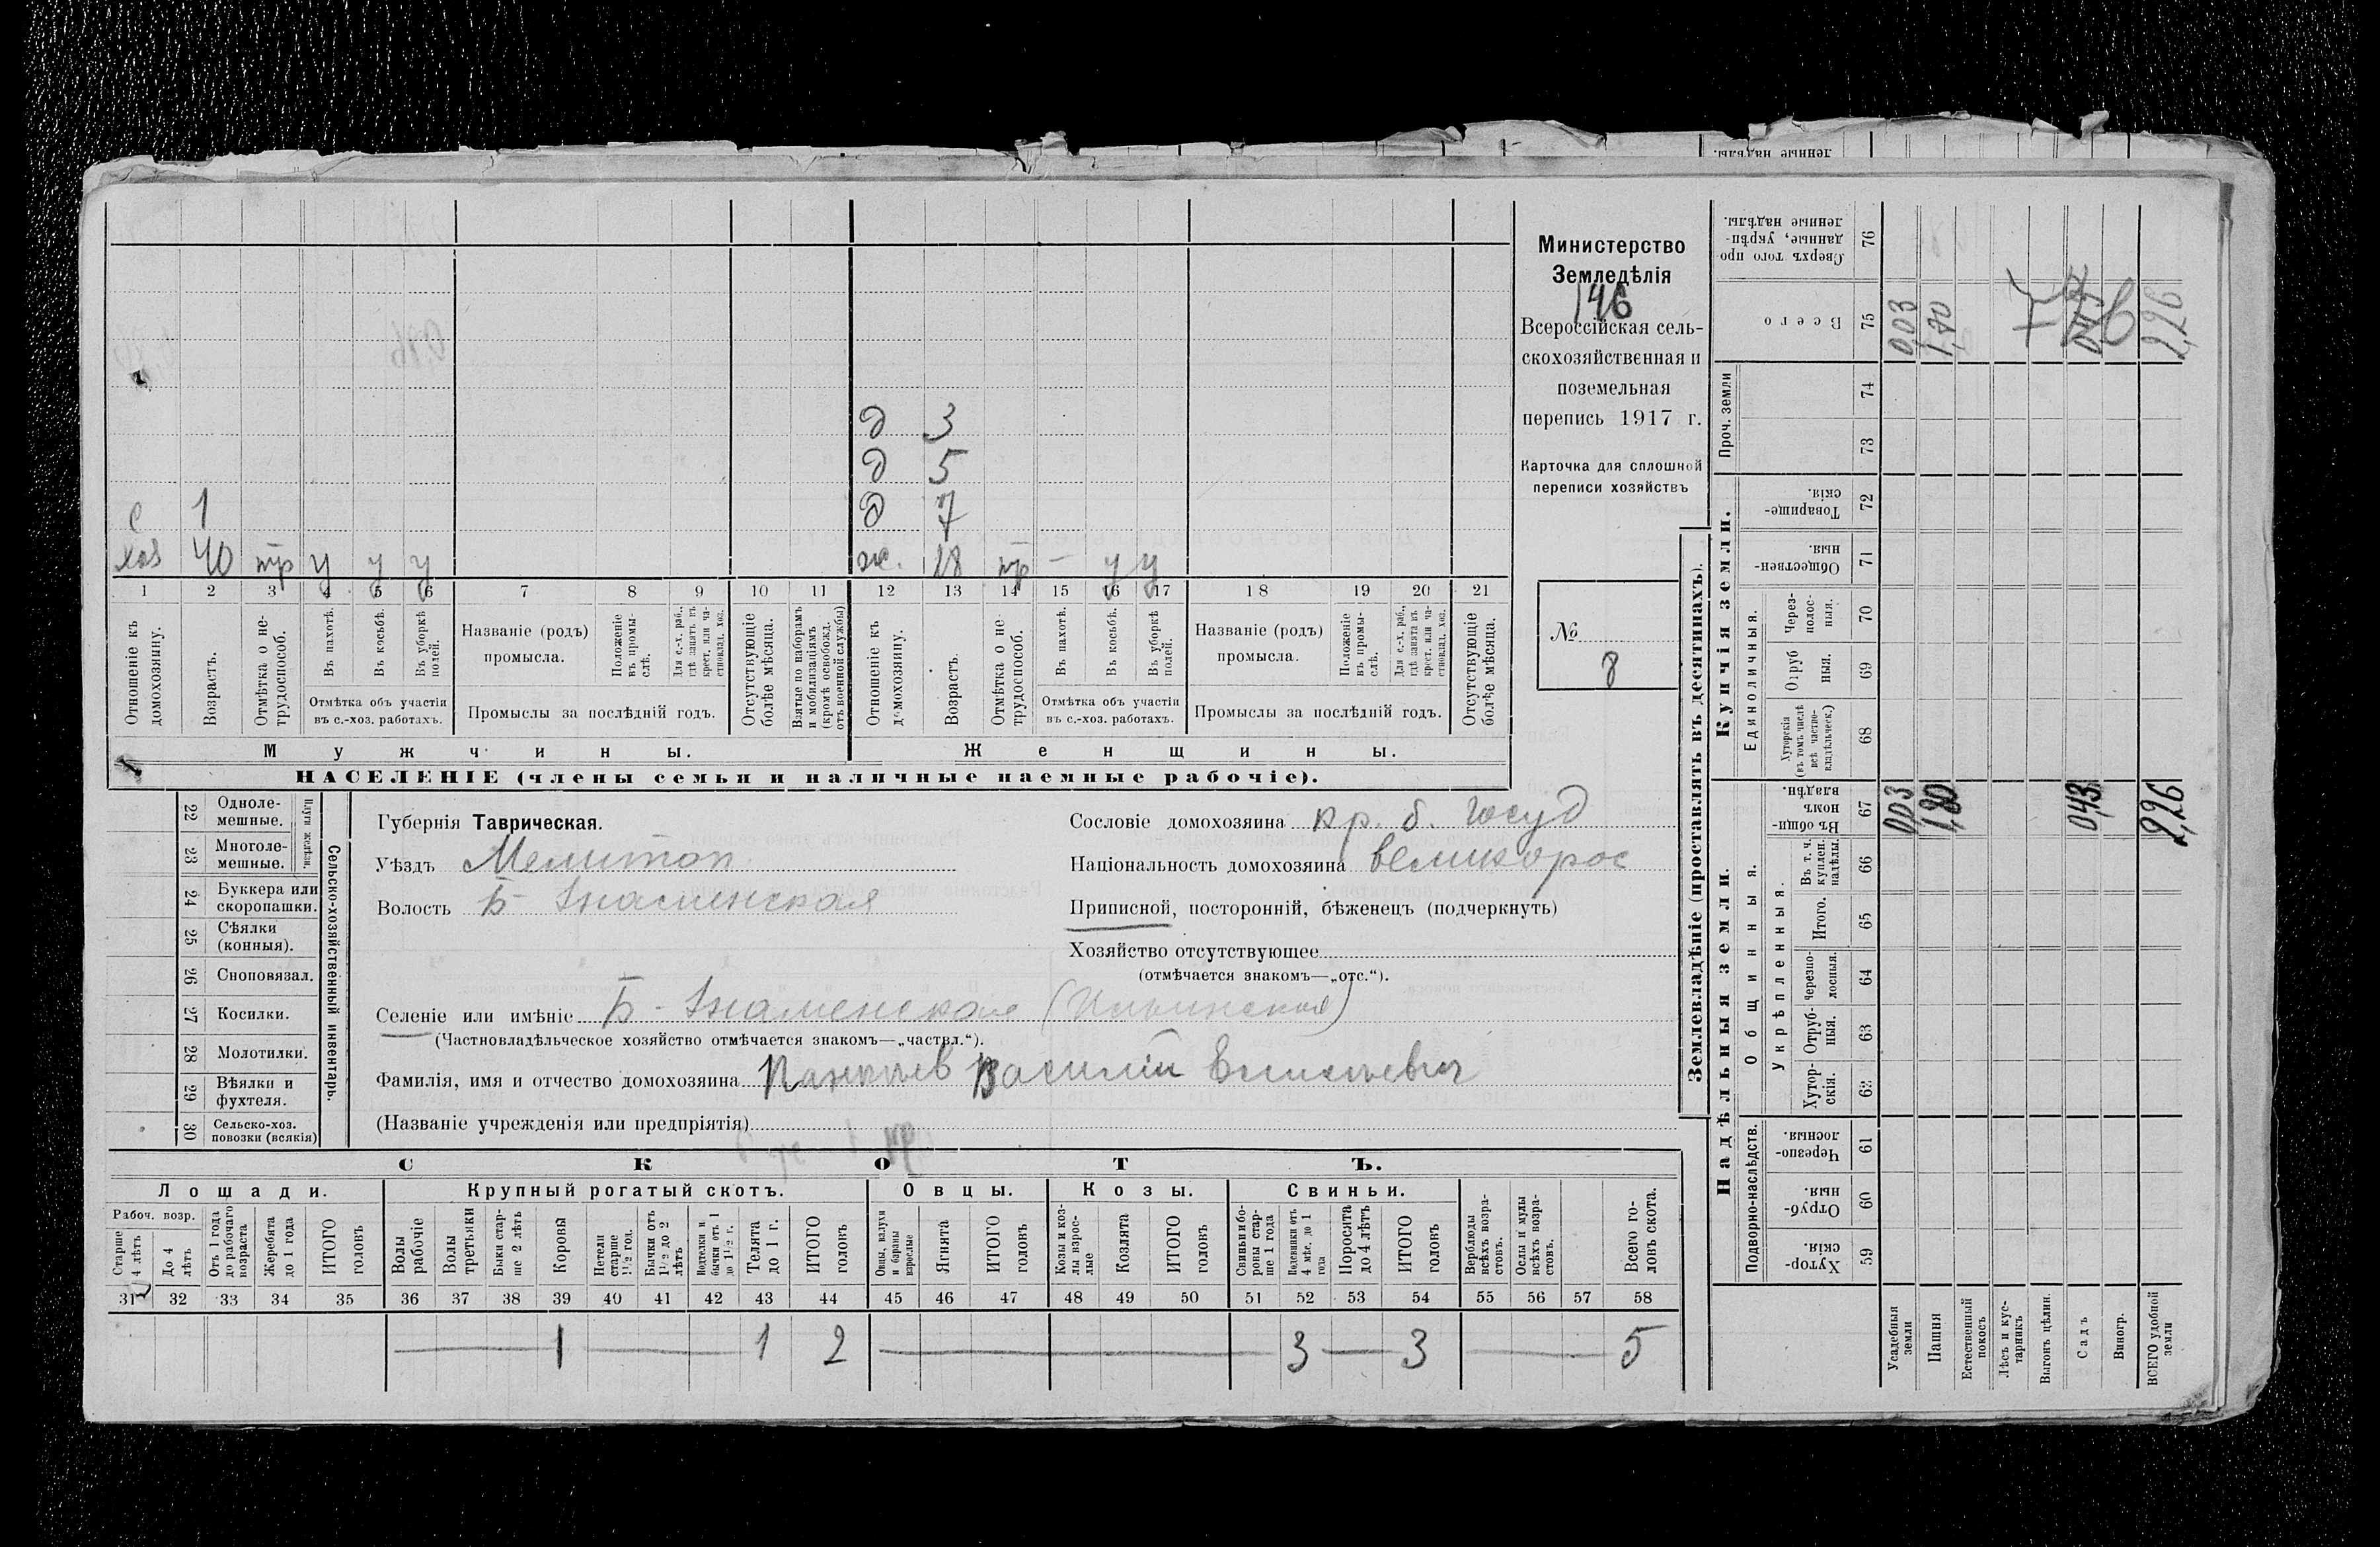 Министерство
Земледѣлія
146
Всероссійская сель-
скохозяйственная и
поземельная
перепись 1917 г.
Карточка для сплошной
переписи хозяйствъ
№
8
д 3
д 5
с 1 д 7
хоз 40 тр у у у ж. 28 тр — у у
1 2 3 4 5 6 7 8 9 10 11 12 13 14 15 16 17 18 19 20 21
Отношеніе къ домохозяину.
Возрастъ.
Отмѣтка о не-трудоспособ.
Въ пахотѣ.
Въ косьбѣ.
Въ уборкѣ полей.
Отмѣтка объ участіи
въ с.-хоз. работахъ.
Названіе (родъ)
промысла.
Положеніе въ промы-слѣ.
Для с.-х. раб., гдѣ занятъ въ крест. или ча-стновлад. хоз.
Промыслы за послѣдній годъ.
Отсутствующіе болѣе мѣсяца.
Взятые по наборамъ и мобилизаціямъ (кромѣ освобожд. отъ военной службы)
Отношеніе къ домохозяину.
Возрастъ.
Отмѣтка о не-трудоспособ.
Въ пахотѣ.
Въ косьбѣ.
Въ уборкѣ полей.
Отмѣтка объ участіи
въ с.-хоз. работахъ.
Названіе (родъ)
промысла.
Положеніе въ промы-слѣ.
Для с.-х. раб., гдѣ занята въ крест. или ча-стновлад. хоз.
Промыслы за послѣдній годъ.
Отсутствующіе болѣе мѣсяца.
Мужчины. Женщины.
НАСЕЛЕНІЕ (члены семьи и наличные наемные рабочіе).
Сельско-хозяйственный инвентарь.
Плуги желѣзн.
22 Одноле-мешные.
23 Многоле-мешные.
24 Буккера или скоропашки.
25 Сѣялки (конныя).
26 Сноповязал.
27 Косилки.
28 Молотилки.
29 Вѣялки и фухтеля.
30 Сельско-хоз. повозки (всякія)
Губернія Таврическая.
Уѣздъ Мелитоп
Волость Б-Знаменская
Сословіе домохозяина кр. б. госуд
Національность домохозяина великорос
Приписной, посторонній, бѣженецъ (подчеркнуть)
Хозяйство отсутствующее
(отмѣчается знакомъ—„отс.“).
Селеніе или имѣніе Б-Знаменская
(Частновладѣльческое хозяйство отмѣчается знакомъ—„частвл.“).
Фамилія, имя и отчество домохозяина Василій
(Названіе учрежденія или предпріятія)
СКОТЪ.
Лошади. Крупный рогатый скотъ. Овцы. Козы. Свиньи.
Рабоч. возр.
Старше 4 лѣтъ
До 4 лѣтъ
Отъ 1 года до рабочаго возраста
Жеребята до 1 года
ИТОГО головъ
Волы рабочіе
Волы третьяки
Быки стар-ше 2 лѣтъ
Коровы
Нетели старше 1½ год.
Бычки отъ 1½ до 2 лѣтъ
Подтелки и бычки отъ 1 до 1½ г.
Телята до 1 г.
ИТОГО головъ
Овцы, валухи и бараны взрослые
Ягнята
ИТОГО головъ
Козы и коз-лы взрос-лые
Козлята
ИТОГО головъ
Свиньи и бо-ровы стар-ше 1 года
Подсвинки отъ 4 мѣс. до 1 года
Поросята до 4 лѣтъ
ИТОГО головъ
Верблюды всѣхъ возра-стовъ.
Ослы и мулы всѣхъ возра-стовъ.
Всего го-ловъ скота.
31 32 33 34 35 36 37 38 39 40 41 42 43 44 45 46 47 48 49 50 51 52 53 54 55 56 57 58
1 1 2 3 3 5
Землевладѣніе (проставлять въ десятинахъ).
Надѣльныя земли. Купчія земли. Проч. земли
Подворно-наслѣдств.
Общинныя.
Укрѣпленныя.
Единоличныя.
Хутор-скія. 59
Отруб-ныя. 60
Черезпо-лосныя. 61
Хутор-скія. 62
Отруб-ныя. 63
Черезпо-лосныя. 64
Итого. 65
Въ т. ч. куплен. надѣлы. 66
Въ общи-номъ владѣн. 67
Хуторскія (въ томъ числѣ всѣ частно-владѣльческ.) 68
Отруб ныя. 69
Через-полос-ныя. 70
Обществен-ныя. 71
Товарище-скія. 72
73
74
Всего 75
Сверхъ того про данные, укрѣп-ленные надѣлы. 76
Усадебныя земли 0,03 0,03
Пашня 1,80 1,70
Естественный покосъ
Лѣсъ и кус-тарникъ
Выгонъ цѣлин.
Садъ 0,43
Виногр.
ВСЕГО удобной земли 2,26 2,26